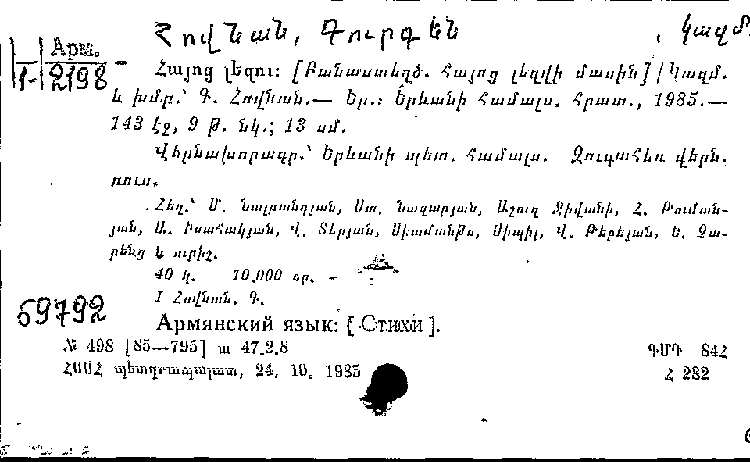 Հովնան, Գուրգեն , կազմ.
Арм.
1-2198
Հայոց լեզու: [Բանաստեղծ. Հայոց լեզվի մասին] / Կազմ.
և խմբ.՝ Գ. Հովնան.— Եր.: Երևանի համալս. հրատ., 1985.—
143 էջ, 9 թ. նկ.; 13 սմ.
Վերնախորագր.՝ Երևանի պետ. համալս. Զուգահեռ վերն.
ռուս.
Հեղ.՝ Մ. Նալբանդյան, Ստ. Նազարյան, Աշուղ Ջիվանի, Հ. Թուման-
յան, Ա. Իսահակյան, Վ. Տերյան, Սիամանթո, Սիպիլ, Վ. Թեքեյան, Ե. Չա-
րենց և ուրիշ.
40 կ. 10.000 օր.
I Հովնան, Գ.
59792
Армянский язык: [Стихи].
№ 498 [85—795] ա 47.2.8
ԳՄԴ 84Հ
ՀՍՍՀ պետգրապալատ, 24. 10. 1985
Հ 282